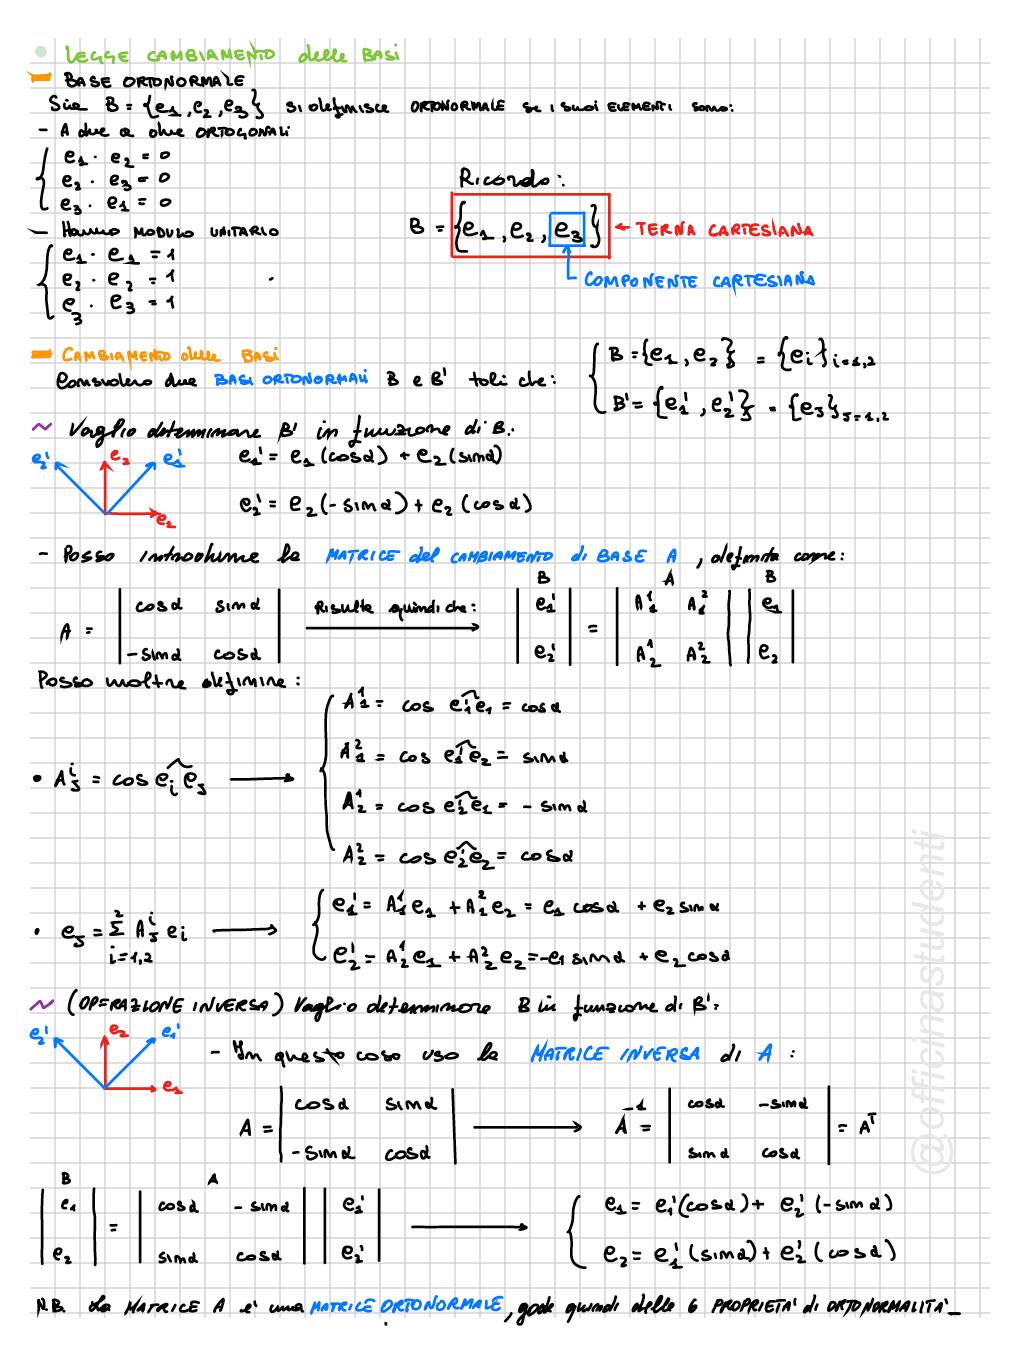 LEGGE CAMBIAMENTO delle BASI
BASE ORTONORMALE
Sia B = {e₁, e₂, e₃} si definisce ORTONORMALE se i suoi ELEMENTI sono:
- A due a due ORTOGONALI
e₁ · e₂ = 0
e₂ · e₃ = 0
e₃ · e₁ = 0
Ricordo:
B = {e₁, e₂, e₃} ← TERNA CARTESIANA
COMPONENTE CARTESIANA
- Hanno MODULO UNITARIO
e₁ · e₁ = 1
e₂ · e₂ = 1
e₃ · e₃ = 1
CAMBIAMENTO delle BASI
Considero due BASI ORTONORMALI B e B' tali che:
B = {e₁, e₂} = {ei}i=1,2
B' = {e₁', e₂'} = {eJ}J=1,2
~ Voglio determinare B' in funzione di B:
e₂' e₂ e₁' e₁
e₁' = e₁ (cosα) + e₂ (sinα)
e₂' = e₂ (-sinα) + e₂ (cosα)
- Posso introdurre la MATRICE del CAMBIAMENTO di BASE A, definita come:
B A B
A = | cosα sinα | Risulta quindi che: | e₁' | = | A₁¹ A₁² | | e₁ |
| -sinα cosα | | e₂' | | A₂¹ A₂² | | e₂ |
Posso inoltre definire:
• AJⁱ = cos ei eJ →
A₁¹ = cos e₁'e₁ = cosα
A₁² = cos e₁'e₂ = sinα
A₂¹ = cos e₂'e₁ = - sinα
A₂² = cos e₂'e₂ = cosα
• eJ = Σ² i=1,2 AJⁱ ei →
e₁' = A₁¹ e₁ + A₁² e₂ = e₁ cosα + e₂ sinα
e₂' = A₂¹ e₁ + A₂² e₂ = -e₁ sinα + e₂ cosα
~ (OPERAZIONE INVERSA) Voglio determinare B in funzione di B':
e₂' e₂ e₁' e₁
- In questo caso uso la MATRICE INVERSA di A :
A = | cosα sinα | → A⁻¹ = | cosα -sinα | = Aᵀ
| -sinα cosα | | sinα cosα |
B A
| e₁ | = | cosα - sinα | | e₁' | → e₁ = e₁' (cosα) + e₂' (-sinα)
| e₂ | | sinα cosα | | e₂' | e₂ = e₁' (sinα) + e₂' (cosα)
N.B. La MATRICE A e' una MATRICE ORTONORMALE, gode quindi delle 6 PROPRIETA' di ORTONORMALITA'
@officinastudenti